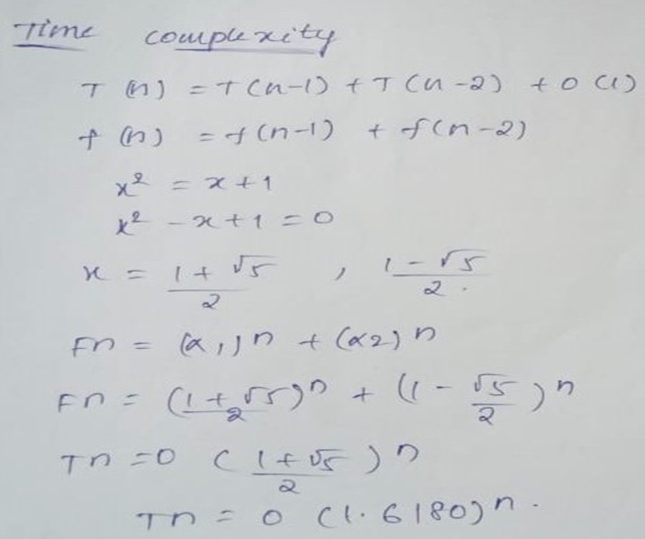 Time complexity
T(n) = T(n-1) + T(n-2) + O(1)
f(n) = f(n-1) + f(n-2)
x² = x+1
x² - x + 1 = 0
x = (1+√5)/2 , (1-√5)/2.
Fn = (α1)n + (α2)n
Fn = ((1+√5)/2)n + (1-√5/2)n
Tn = O((1+√5)/2)n
Tn = O(1.6180)n.